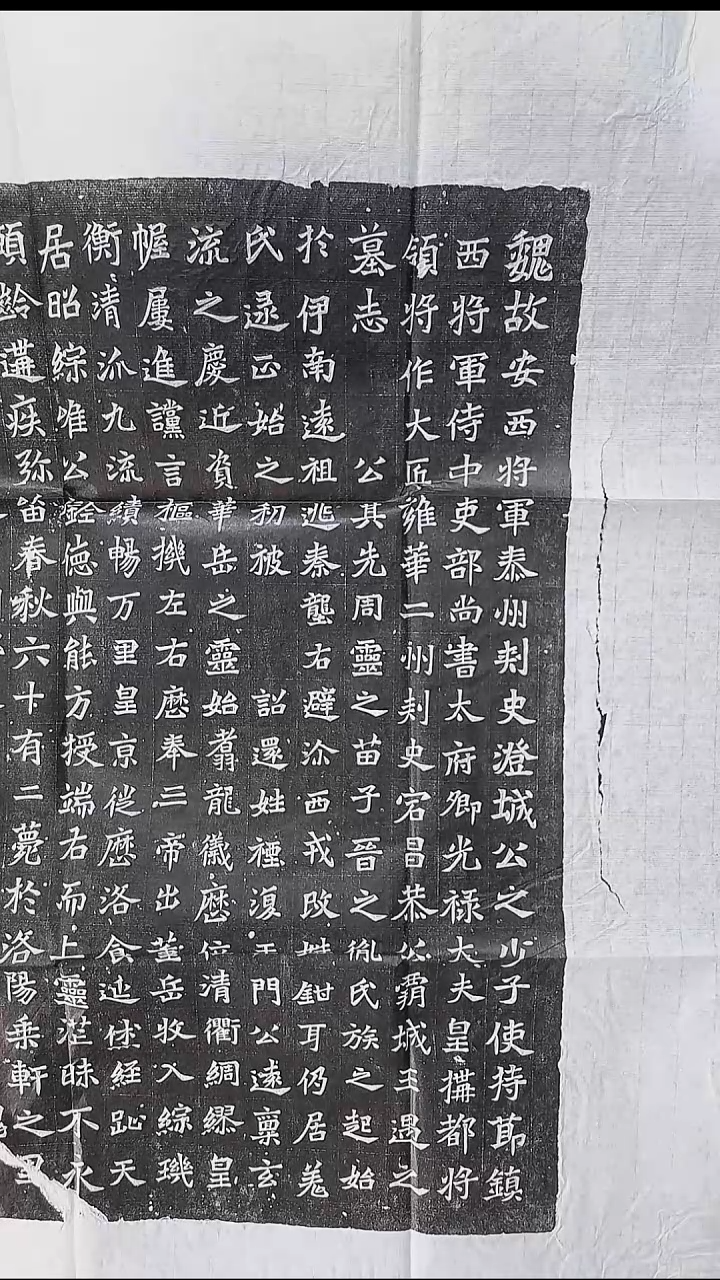 魏故安西將軍泰州刾史澄城公之少子使持節鎮
西將軍侍中吏部尚書太府卿光祿大夫皇構都將
領將作大匠雍華二州刾史宕昌恭公霸城王遇之
墓志 公其先周靈之苗子晉之胤氏族之起始
於伊南遠祖逃秦壟右避沵西戎改姓鉗耳仍居羌
氏逯正始之初被 詔還姓禋復王門公遠稟玄
流之慶近資華岳之靈始翥龍徽歷位清衢綢繆皇
幄屢進讜言樞機左右歷奉三帝出蕃岳牧入綜璣
衡清泒九流績暢万里皇京徙歷洛食經趾天
居昭綜唯公銓德與能方授端右而上靈茫昧不永
頭齡遘疾弥留春秋六十有二薨於洛陽乘軒之里